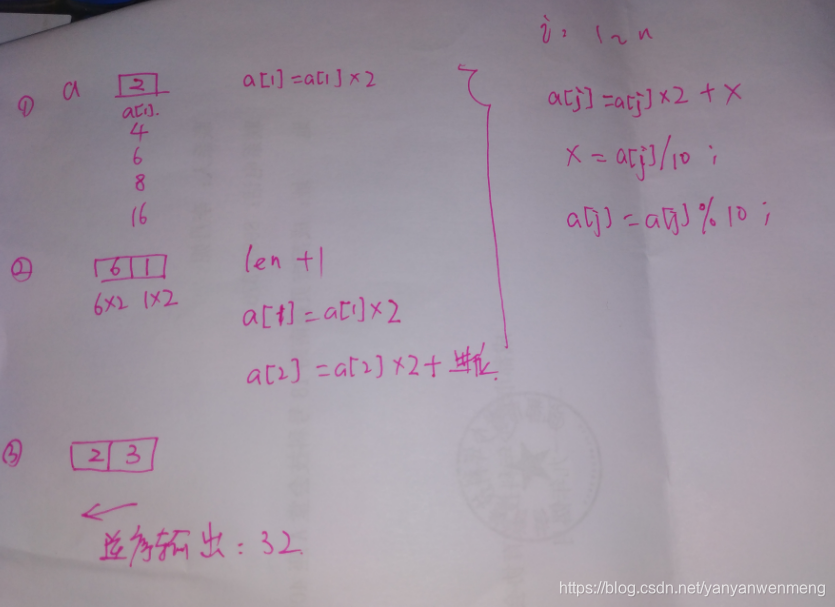 i: 1~n
① a 2 a[1]=a[1]×2
a[1].
4
6
8
16
a[j]=a[j]×2+x
x=a[j]/10;
a[j]=a[j]%10;
② 6 1 len +1
6×2 1×2
a[1]=a[1]×2
a[2]=a[2]×2+进位.
③ 2 3
←
逆序输出:32.
https://blog.csdn.net/yanyanwenmeng